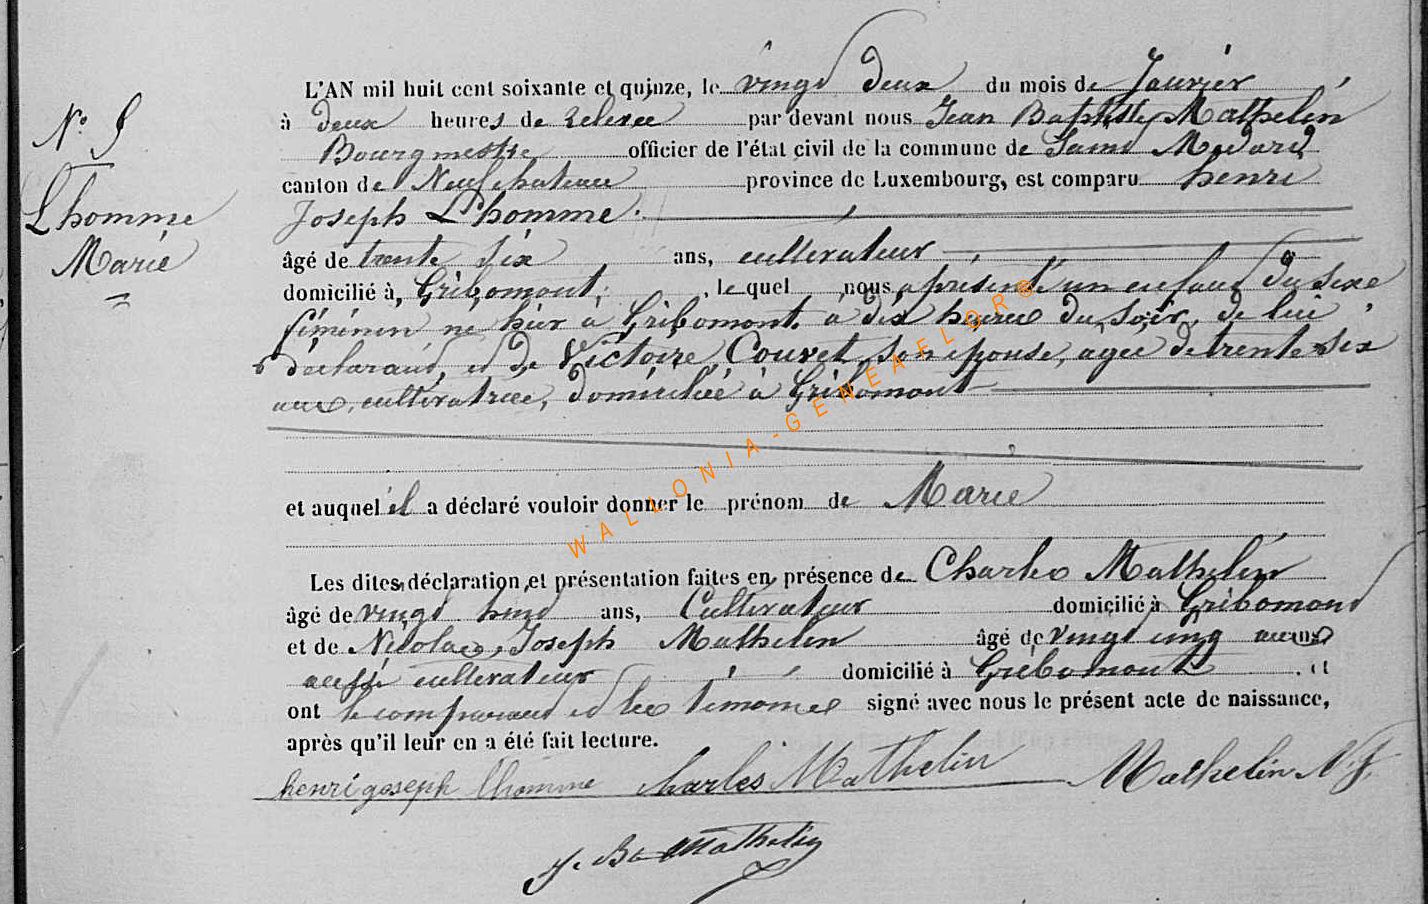 N° 5
Lhomme
Marie
L'AN mil huit cent soixante et quinze, le vingt deux du mois de Janvier
à deux heures de relevée par devant nous Jean Baptiste Mathelin
Bourgmestre officier de l'état civil de la commune de Saint Médard
canton de Neufchateau province de Luxembourg, est comparu henri
Joseph Lhomme.
âgé de trente six ans, cultivateur
domicilié à Gribomont, lequel nous a présenté un enfant du sexe
féminin né hier à Gribomont à dix heures du soir, de lui
déclarant, et de Victoire Couvet son épouse, agée de trente six
ans, cultivatrice, domiciliée à Gribomont
et auquel il a déclaré vouloir donner le prénom de Marie
Les dites déclaration et présentation faites en présence de Charles Mathelin
âgé de vingt ans, Cultivateur domicilié à Gribomont
et de Nicolas Joseph Mathelin âgé de vingt cinq ans
aussi cultivateur domicilié à Gribomont et
ont le comparant et les témoins signé avec nous le présent acte de naissance,
après qu'il leur en a été fait lecture.
henri joseph lhomme charles Mathelin Mathelin N.J.
J. Bte Mathelin
WALLONIA-GENEAFLOR®